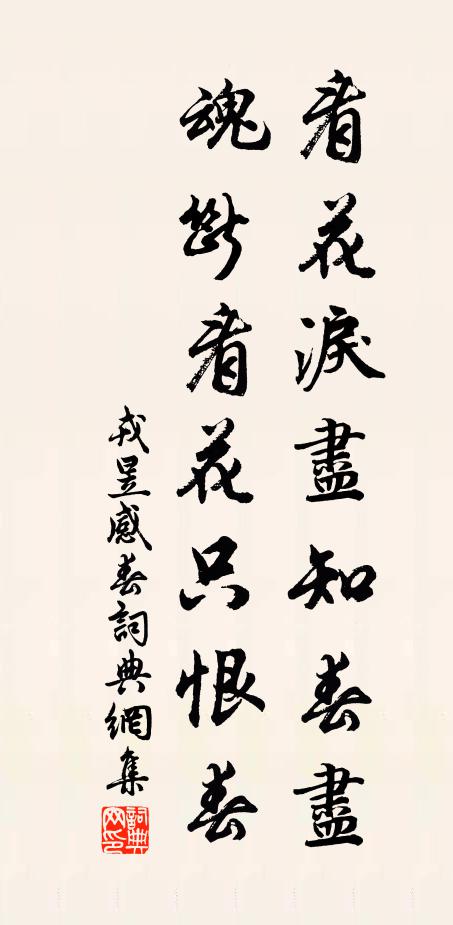 看花淚盡知春盡
魂斷看花只恨春
戎昱感春詞典網集
詞典網印